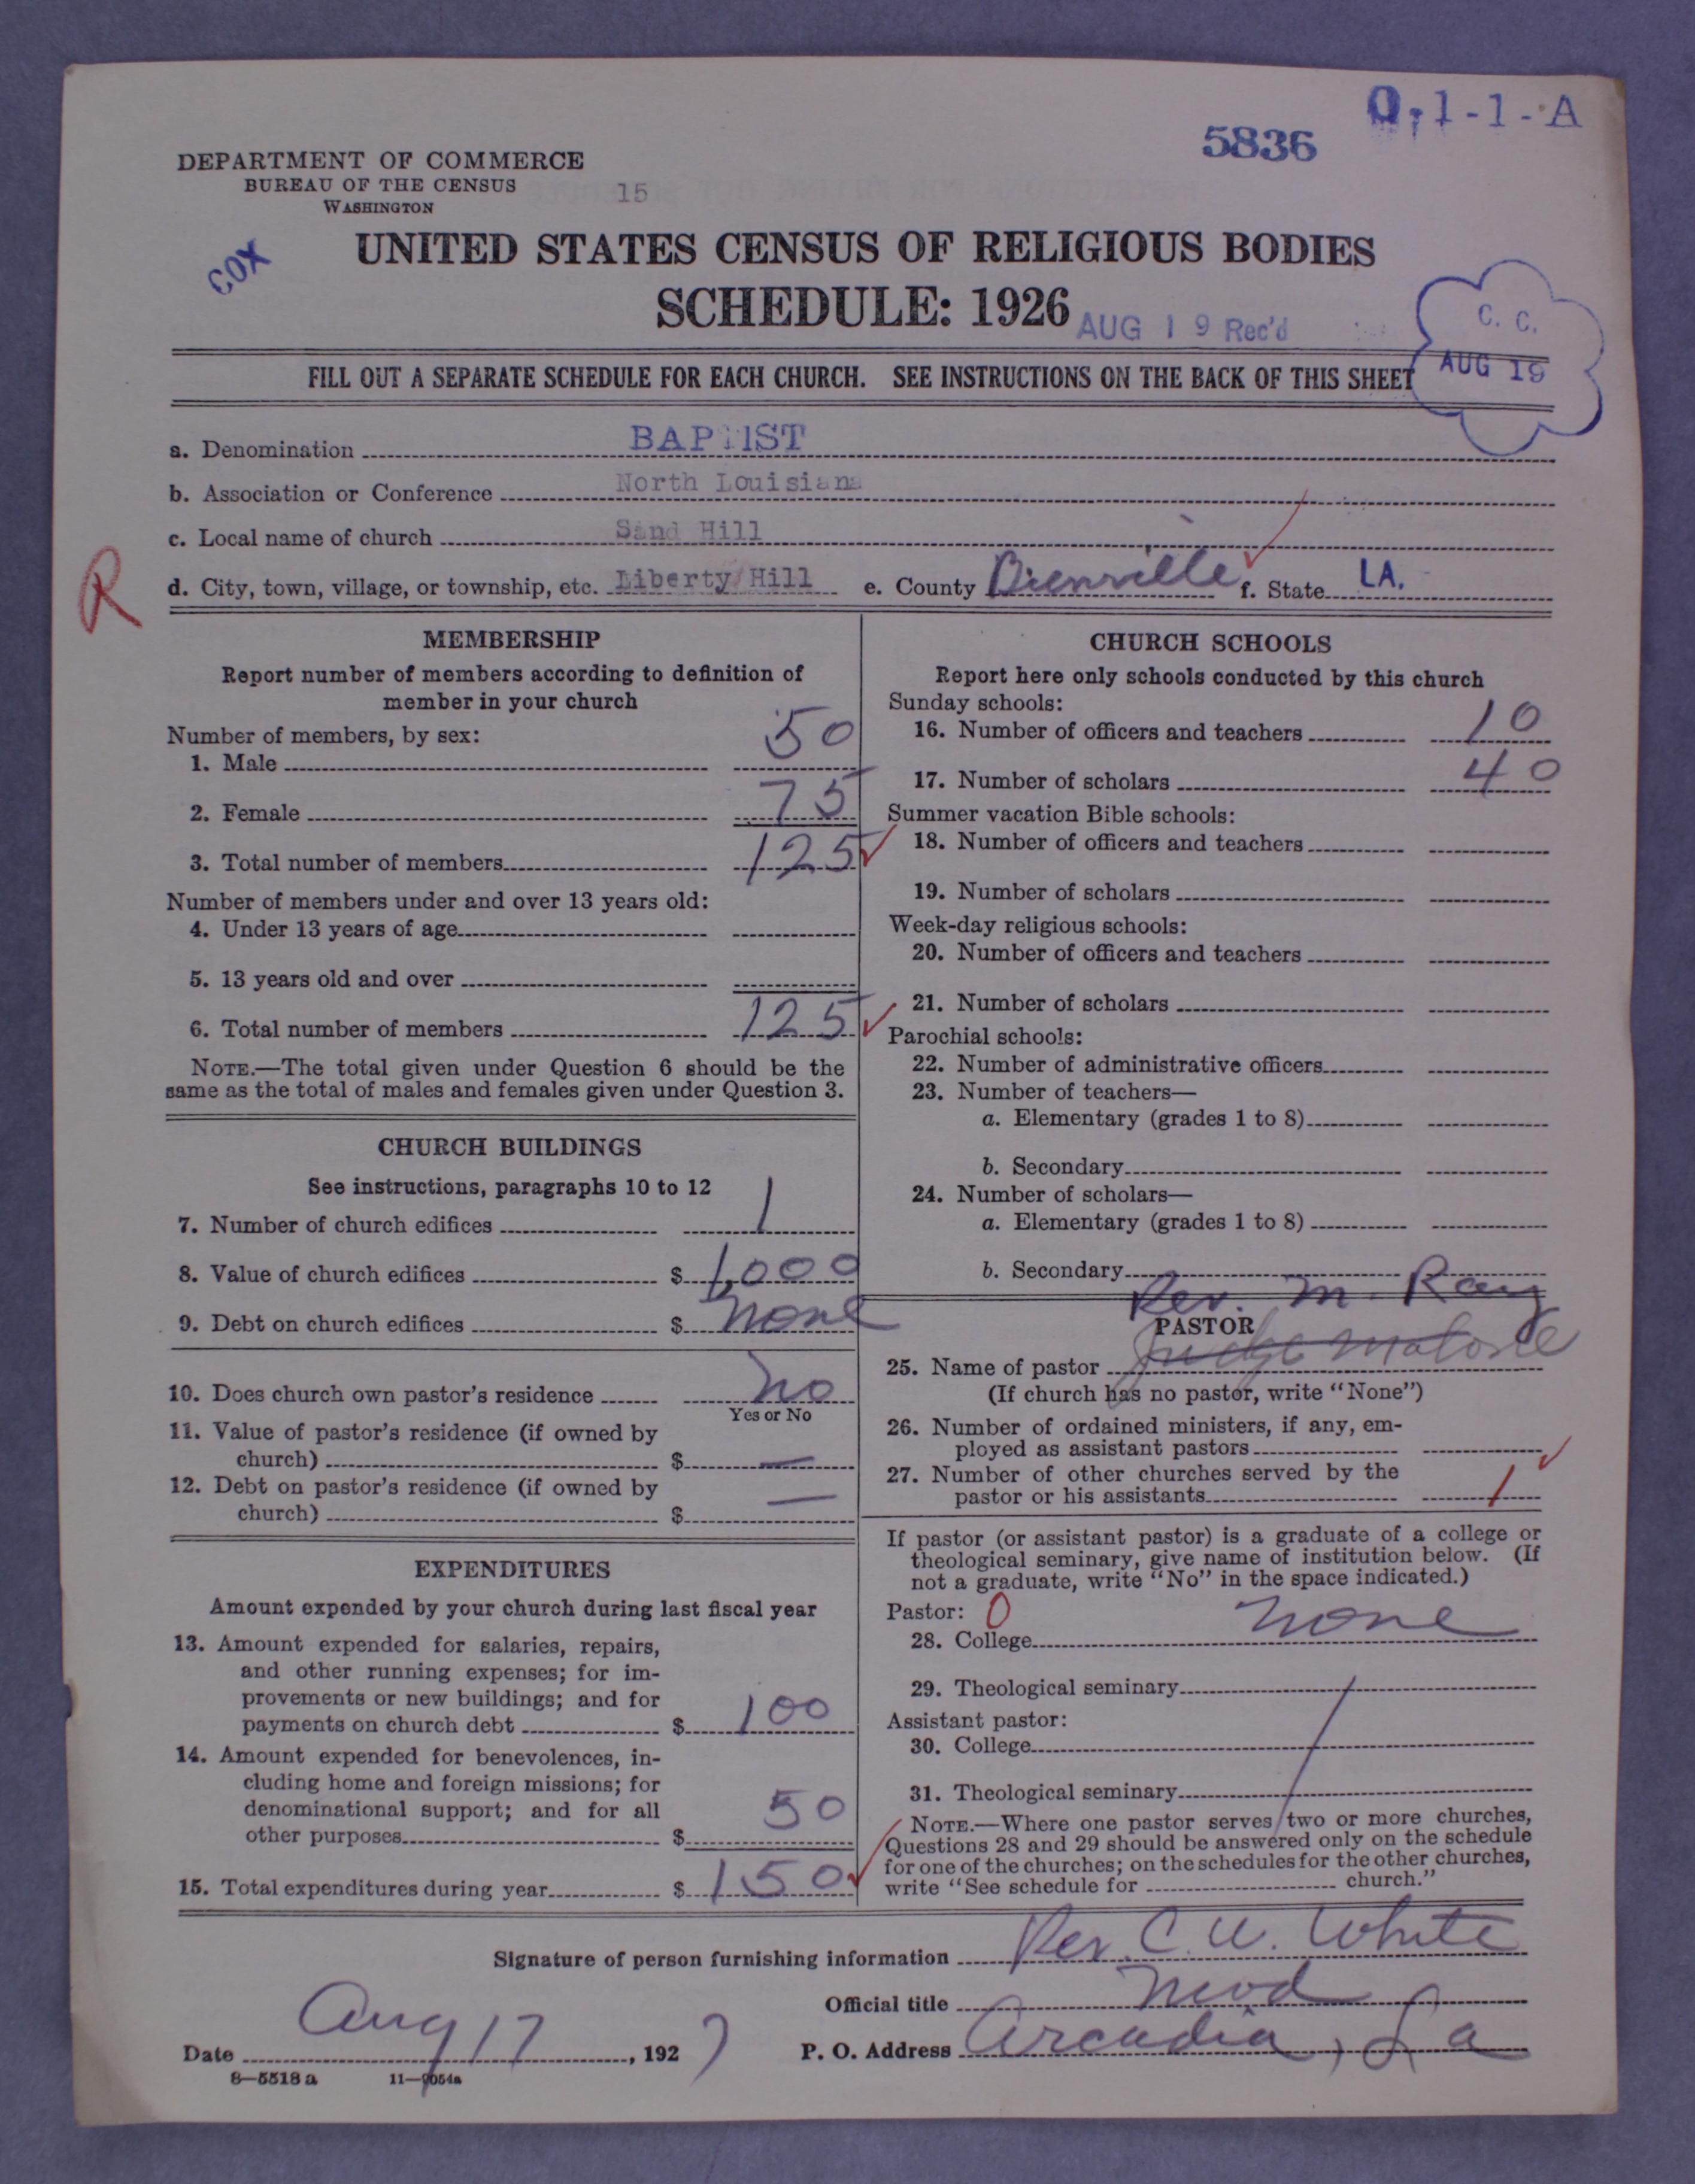 O-1-1-A
5836
DEPARTMENT OF COMMERCE
BUREAU OF THE CENSUS
WASHINGTON
15
COX
UNITED STATES CENSUS OF RELIGIOUS BODIES
SCHEDULE: 1926
AUG 19 Rec'd
C. C.
AUG 19
FILL OUT A SEPARATE SCHEDULE FOR EACH CHURCH. SEE INSTRUCTIONS ON THE BACK OF THIS SHEET
a. Denomination BAPTIST
b. Association or Conference North Louisiana
c. Local name of church Sand Hill
R
d. City, town, village, or township, etc. Liberty Hill e. County Bienville f. State LA.
MEMBERSHIP
Report number of members according to definition of
member in your church
Number of members, by sex:
1. Male 50
2. Female 75
3. Total number of members 125
Number of members under and over 13 years old:
4. Under 13 years of age
5. 13 years old and over
6. Total number of members 125
NOTE.—The total given under Question 6 should be the
same as the total of males and females given under Question 3.
CHURCH BUILDINGS
See instructions, paragraphs 10 to 12
7. Number of church edifices 1
8. Value of church edifices $ 1,000
9. Debt on church edifices $ none
10. Does church own pastor's residence no
Yes or No
11. Value of pastor's residence (if owned by
church) $ —
12. Debt on pastor's residence (if owned by
church) $ —
EXPENDITURES
Amount expended by your church during last fiscal year
13. Amount expended for salaries, repairs,
and other running expenses; for im-
provements or new buildings; and for
payments on church debt $ 100
14. Amount expended for benevolences, in-
cluding home and foreign missions; for
denominational support; and for all
other purposes $ 50
15. Total expenditures during year $ 150
CHURCH SCHOOLS
Report here only schools conducted by this church
Sunday schools:
16. Number of officers and teachers 10
17. Number of scholars 40
Summer vacation Bible schools:
18. Number of officers and teachers
19. Number of scholars
Week-day religious schools:
20. Number of officers and teachers
21. Number of scholars
Parochial schools:
22. Number of administrative officers
23. Number of teachers—
a. Elementary (grades 1 to 8)
b. Secondary
24. Number of scholars—
a. Elementary (grades 1 to 8)
b. Secondary
Rev. M. Ray
PASTOR
25. Name of pastor Judge Malone
(If church has no pastor, write "None")
26. Number of ordained ministers, if any, em-
ployed as assistant pastors
27. Number of other churches served by the
pastor or his assistants 1
If pastor (or assistant pastor) is a graduate of a college or
theological seminary, give name of institution below. (If
not a graduate, write "No" in the space indicated.)
Pastor: 0
28. College none
29. Theological seminary
Assistant pastor:
30. College
31. Theological seminary
NOTE.—Where one pastor serves two or more churches,
Questions 28 and 29 should be answered only on the schedule
for one of the churches; on the schedules for the other churches,
write "See schedule for church."
Signature of person furnishing information Rev. C. W. White
Official title Mod
Date Aug 17, 1927 P. O. Address Arcadia, La
8—5518 a 11—9054a